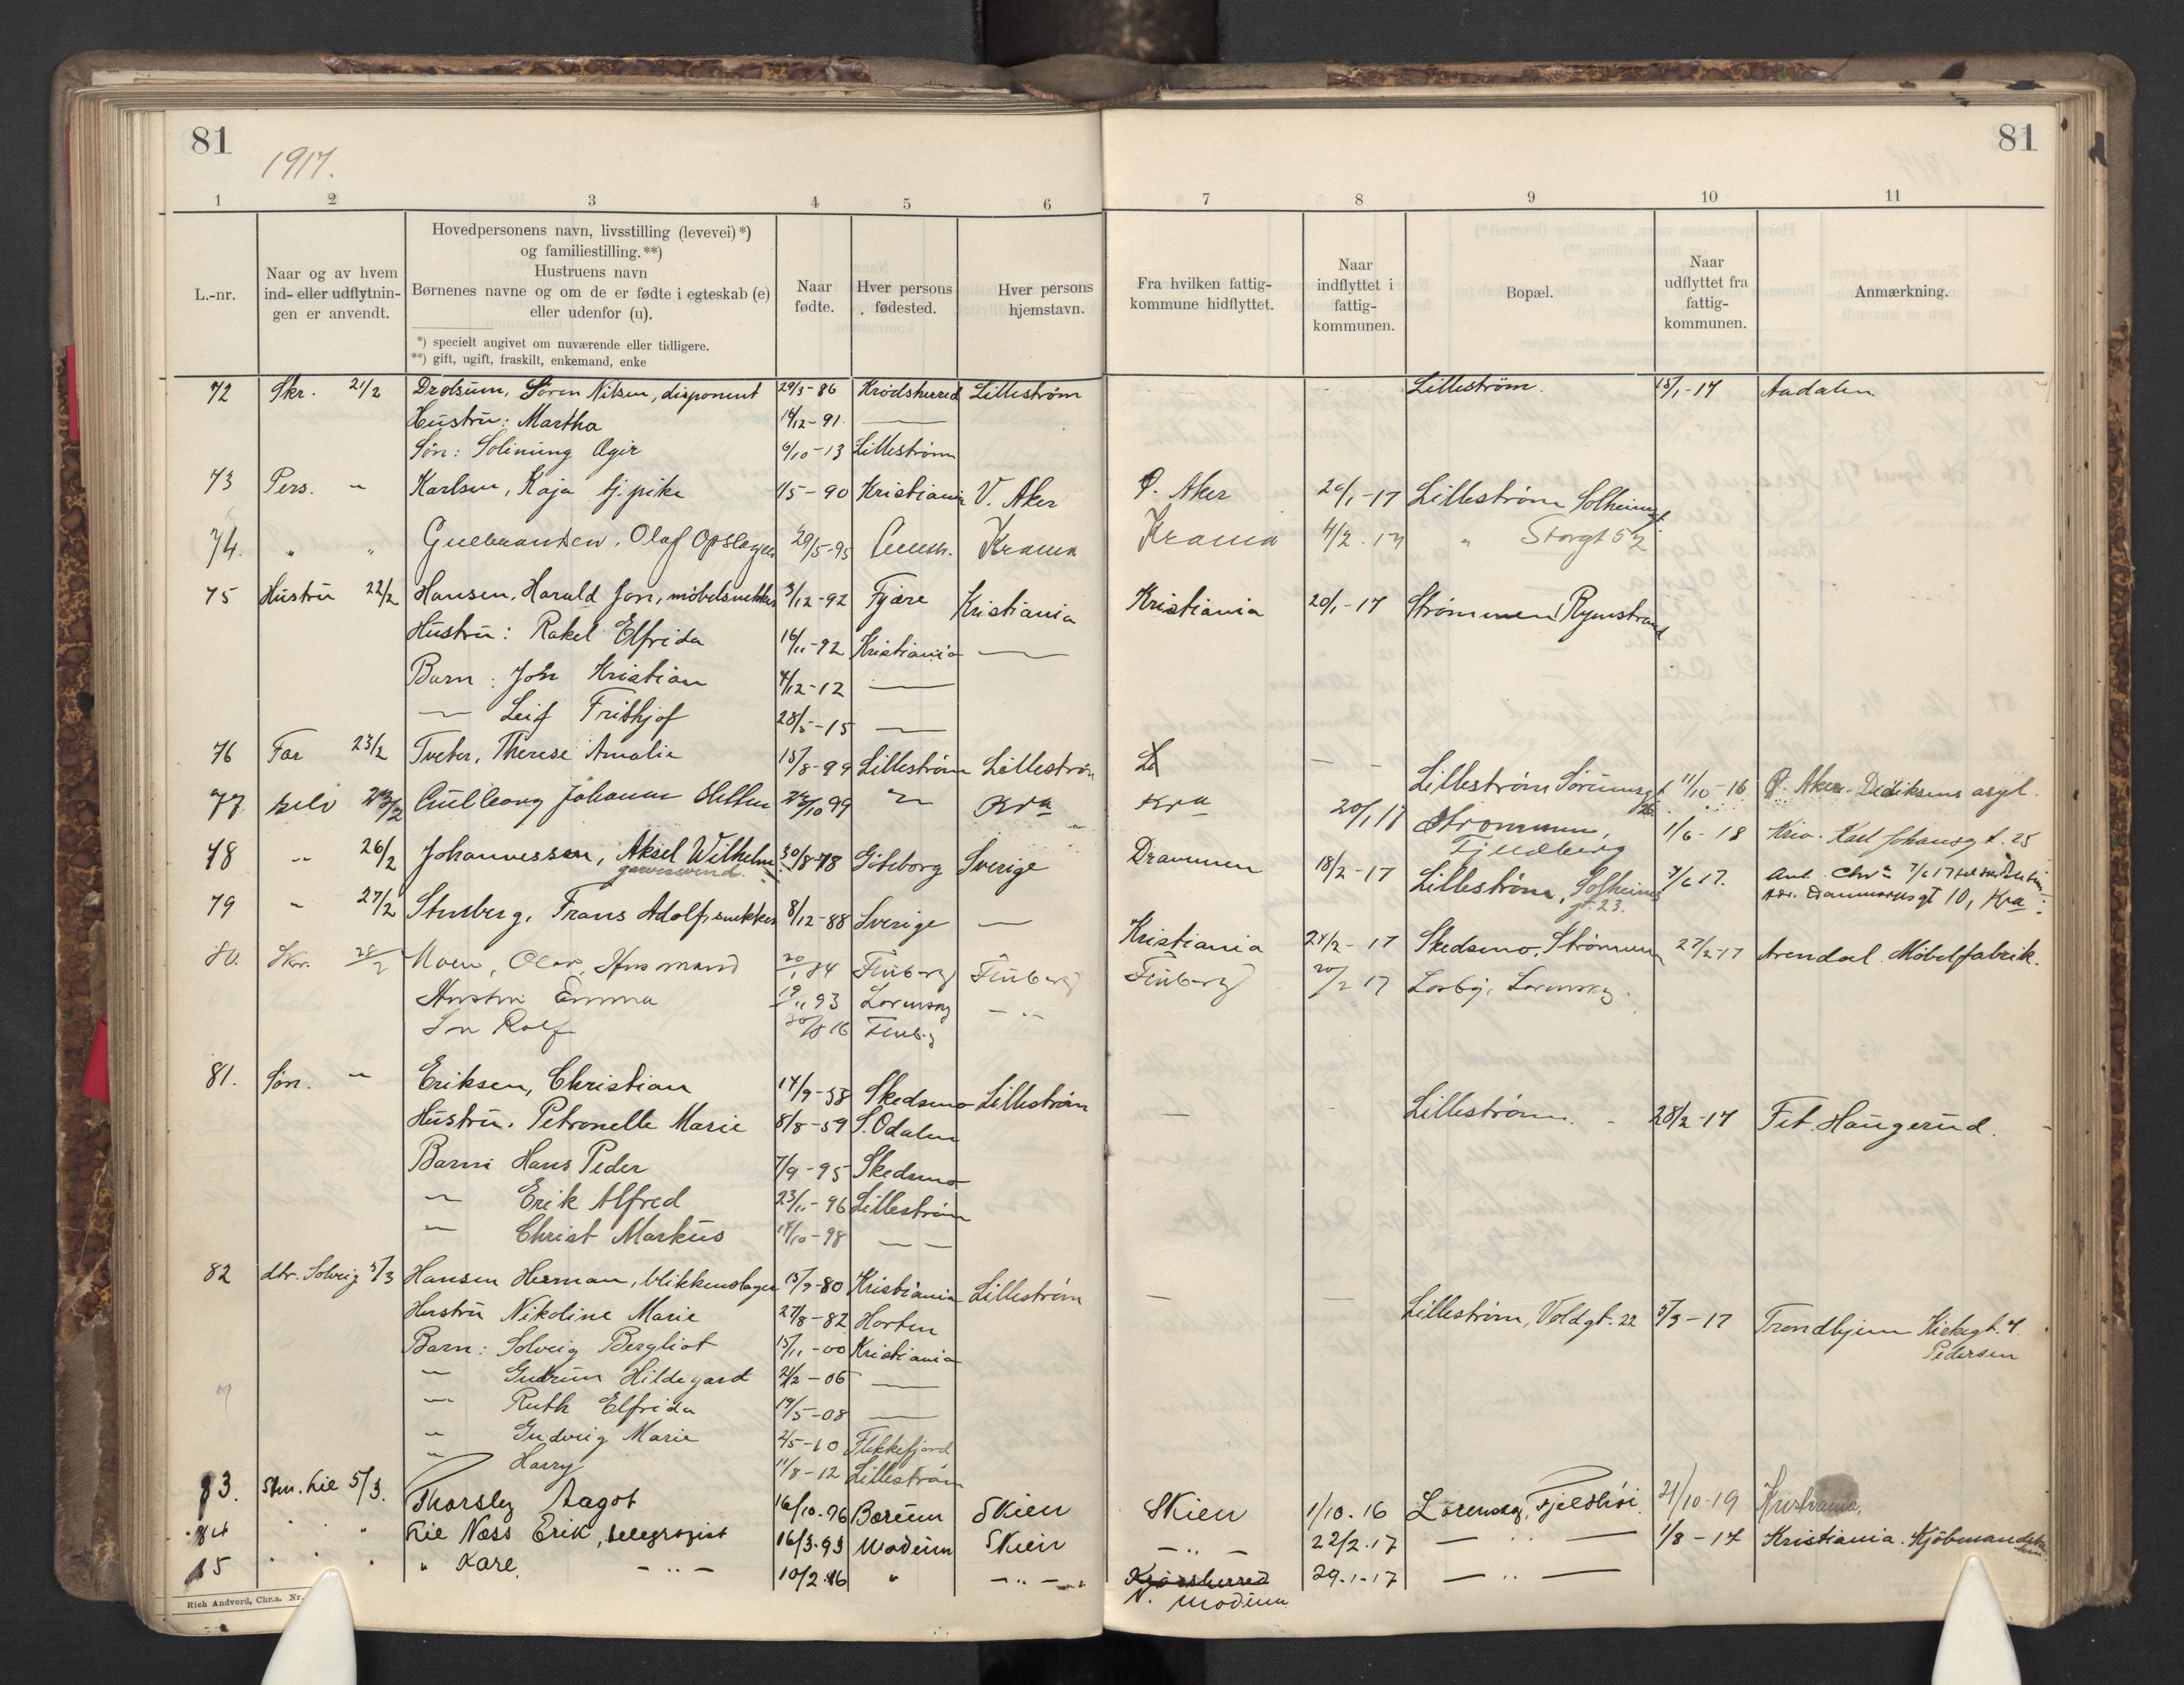 81
1917.
81
1 2 3 4 5 6 7 8 9 10 11
L.-nr.
Naar og av hvem
ind- eller udflytnin-
gen er anvendt.
Hovedpersonens navn, livsstilling (levevei)*)
og familiestilling.**)
Hustruens navn
Børnenes navne og om de er fødte i egteskab (e)
eller udenfor (u).
*) specielt angivet om nuværende eller tidligere.
**) gift, ugift, fraskilt, enkemand, enke
Naar
fødte.
Hver persons
fødested.
Hver persons
hjemstavn.
Fra hvilken fattig-
kommune hidflyttet.
Naar
indflyttet i
fattig-
kommunen.
Bopæl.
Naar
udflyttet fra
fattig-
kommunen.
Anmærkning.
72 Skr. 21/2 Drolsum, Sören Nilsen, disponent 29/3-86 Krödsherred Lilleström Lilleström. 15/1-17 Aadalen
Hustru: Martha 14/12-91. —
Sön: Solimung Ogir 6/10-13 Lilleström
73 Pers. " Karlsen, Kaja tj. pike 1/5-90 Kristiania V. Aker Ø. Aker 20/1-17 Lilleström Solheimsgt
74. " " Gulbrantsen, Olaf 29/5-95 Krania Krania 4/2-17 " Storgt 52
75 Hustru 22/2 Hansen, Harald Jon, möbelsnekker 3/12-92 Fjære Kristiania Kristiania 20/1-17 Strömmen Rymstrand
Hustru: Rakel Elfrida 16/11-92 Kristiania —
Barn: John Kristian 4/12-12 —
— Leif Frithjof 28/5-15 —
76 Far 23/2 Tveter, Therese Amalie 15/8-99 Lilleström Lilleström — - Lilleström Sörumsgt 26 11/10-16 Ø. Aker. Didriksens asyl.
77 selv 23/2 Johanne 24/10 99 " Kra Kra 20/1 17 Strommen, Fjeldberg 1/6-18 Kria. Karl Johansgt. 25
78 " 26/2 Johannessen, Aksel Wilhelm 30/8-78 Göteborg Sverige Drammen 18/2-17 Lilleström, Solheimsgt. 23. 7/6 17.
garversvend.
adr. Danmarksgt 10, Kra.
79 " 27/2 Stusberg, Frans Adolf, snekker 8/12-88 Sverige — Kristiania 24/2-17 Skedsmo, Strömmen 27/2-17 Arendal Möbelfabrik.
80. Skr. 28/2 Moen, Olav, Husmand 20/1 84 Finberg Finberg Finberg 20/2 17 Losby, Lorenskog.
Hustru Emma 19/11 93 Lorenskog — " —
Sön Rolf 30/8 16
81. Sön. " Eriksen, Christian 14/9-58 Skedsmo Lilleström — Lilleström. 28/2-17 Fet. Haugerud.
Hustru. Petronelle Marie 8/8-59 S. Odalen
Barn: Hans Peder 7/9-95 Skedsmo
— Erik Alfred 23/11-96 Lilleström
— Christ Markus 14/10-98 — —
82 dtr. Solveig 5/3 Hansen Herman, blikkenslager 15/9-80 Kristiania Lilleström — — Lilleström, Voldgt. 22 5/3-17 Trondhjem Kirkegt. 4.
Pedersen
Hustru Nikoline Marie 27/8-82 Horten
Barn: Solveig Bergliot 15/11-00 Kristiania
— Gudrun Hildegard 2/2-06 —
— Ruth Elfrida 19/5-08 —
" Gudveig Marie 2/5-10 Flekkefjord
" Harry 11/8-12 Lilleström
83. Stm. Lie 5/3. Thorsley Aagot 16/10.96 Bærum Skien Skien 1/10.16 Lörenskog, Fjelshöi. 21/10-19 Kristiania,
84 " " " Lie Næss Erik, telegrafist 16/3.93 Modum Skien — " — 22/2.17 — " — 1/8-17 Kristiania. Kjöbmand
85 " " " " Kare. — " — 10/2.16 " — " — Krödsherred 29.1-17 — " —
N. Modum
Rich Andvord, Chr.a. Nr.